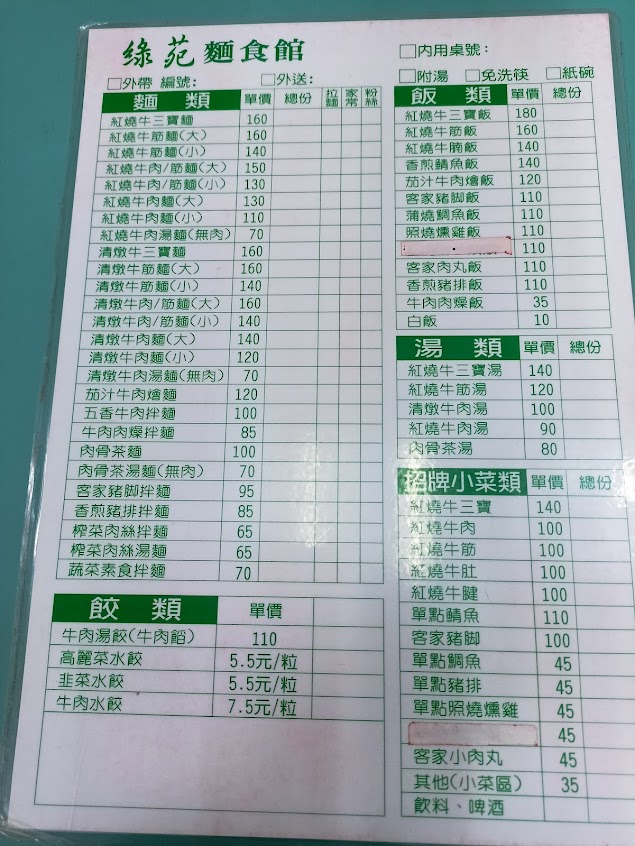 綠苑麵食館
□內用桌號：
□外帶 編號： □外送：
□附湯 □免洗筷 □紙碗
麵 類 單價 總份 拉麵 家常 粉絲
紅燒牛三寶麵 160
紅燒牛筋麵(大) 160
紅燒牛筋麵(小) 140
紅燒牛肉/筋麵(大) 150
紅燒牛肉/筋麵(小) 130
紅燒牛肉麵(大) 130
紅燒牛肉麵(小) 110
紅燒牛肉湯麵(無肉) 70
清燉牛三寶麵 160
清燉牛筋麵(大) 160
清燉牛筋麵(小) 140
清燉牛肉/筋麵(大) 160
清燉牛肉/筋麵(小) 140
清燉牛肉麵(大) 140
清燉牛肉麵(小) 120
清燉牛肉湯麵(無肉) 70
茄汁牛肉燴麵 120
五香牛肉拌麵 100
牛肉肉燥拌麵 85
肉骨茶麵 100
肉骨茶湯麵(無肉) 70
客家豬腳拌麵 95
香煎豬排拌麵 85
榨菜肉絲拌麵 65
榨菜肉絲湯麵 65
蔬菜素食拌麵 70
餃 類 單價
牛肉湯餃(牛肉餡) 110
高麗菜水餃 5.5元/粒
韭菜水餃 5.5元/粒
牛肉水餃 7.5元/粒
飯 類 單價 總份
紅燒牛三寶飯 180
紅燒牛筋飯 160
紅燒牛腩飯 140
香煎鯖魚飯 140
茄汁牛肉燴飯 120
客家豬腳飯 110
蒲燒鯛魚飯 110
照燒燻雞飯 110
110
客家肉丸飯 110
香煎豬排飯 110
牛肉肉燥飯 35
白飯 10
湯 類 單價 總份
紅燒牛三寶湯 140
紅燒牛筋湯 120
清燉牛肉湯 100
紅燒牛肉湯 90
肉骨茶湯 80
招牌小菜類 單價 總份
紅燒牛三寶 140
紅燒牛肉 100
紅燒牛筋 100
紅燒牛肚 100
紅燒牛腱 100
單點鯖魚 110
客家豬腳 100
單點鯛魚 45
單點豬排 45
單點照燒燻雞 45
45
客家小肉丸 45
其他(小菜區) 35
飲料、啤酒